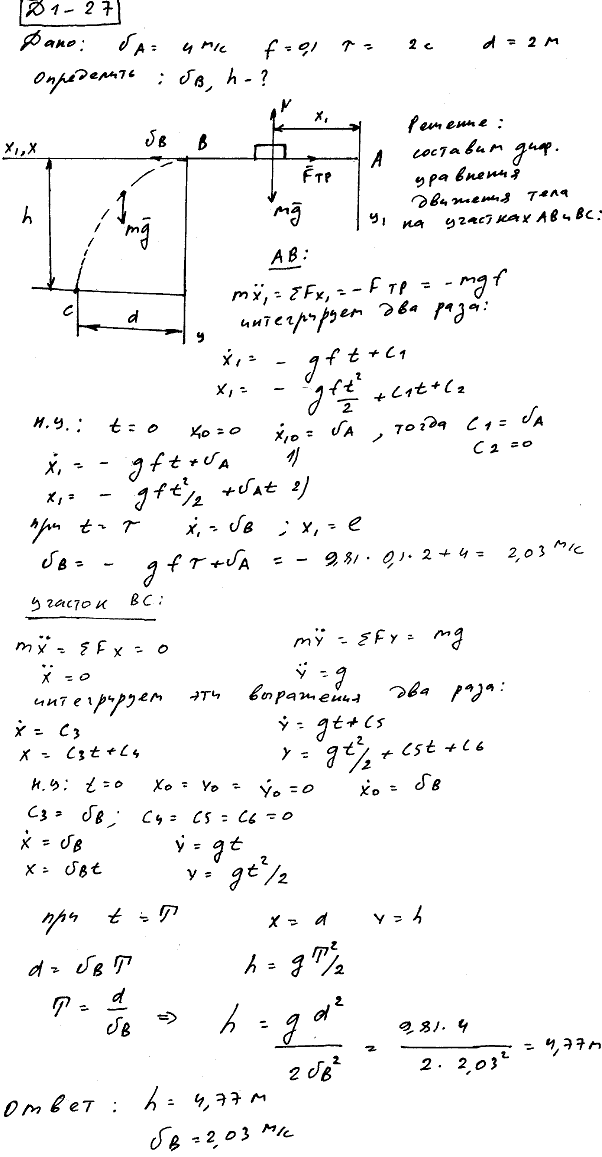 Д1-27
Дано: υA = 4 м/с f = 0,1 τ = 2 с d = 2 м
Определить: υB, h - ?
x1, x υB B N x1 A
F̄тр
mḡ
y1
h
mḡ
C d y
Решение:
составим диф.
уравнения
движения тела
на участках AB и BC:
AB:
mẍ1 = ΣFx1 = -Fтр = -mgf
интегрируем два раза:
ẋ1 = - gft + C1
x1 = - gft²/2 + C1t + C2
н.у.: t = 0 x10 = 0 ẋ10 = υA, тогда C1 = υA
C2 = 0
ẋ1 = - gft + υA 1)
x1 = - gft²/2 + υAt 2)
при t = τ ẋ1 = υB ; x1 = l
υB = - gfτ + υA = - 9,81 · 0,1 · 2 + 4 = 2,03 м/с
участок BC:
mẍ = ΣFx = 0 mÿ = ΣFy = mg
ẍ = 0 ÿ = g
интегрируем эти выражения два раза:
ẋ = C3 ẏ = gt + C5
x = C3t + C4 y = gt²/2 + C5t + C6
н.у: t = 0 x0 = y0 = ẏ0 = 0 ẋ0 = υB
C3 = υB; C4 = C5 = C6 = 0
ẋ = υB ẏ = gt
x = υBt y = gt²/2
при t = T x = d y = h
d = υB T h = g T²/2
T = d/υB ⇒ h = g d²/2υB² = 9,81 · 4/2 · 2,03² = 4,77 м
Ответ: h = 4,77 м
υB = 2,03 м/с